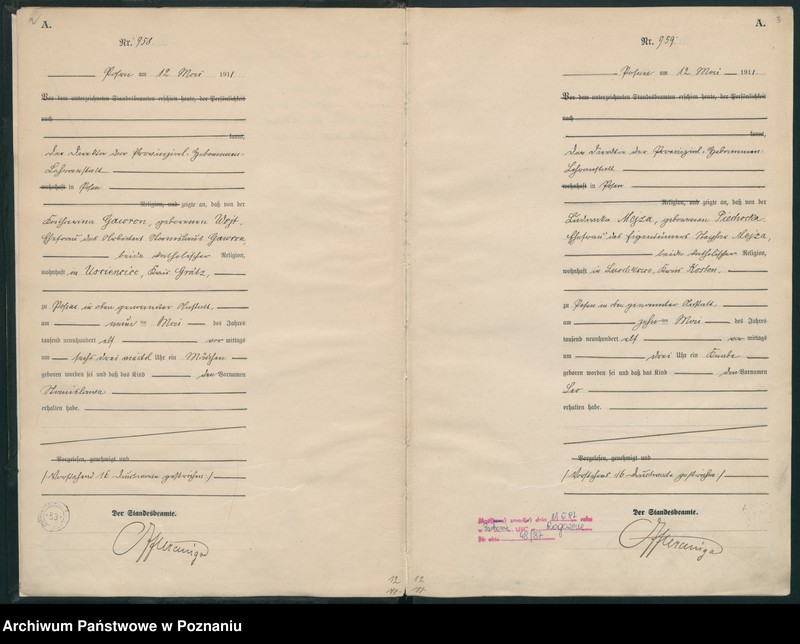 A.
Nr. 958
Posen am 12 Mai 1911
Vor dem unterzeichneten Standesbeamten erschien heute, der Persönlichkeit
nach
kannt,
der Direktor der Provinzial-Hebammen-
Lehranstalt
wohnhaft in Posen
Religion, und zeigte an, daß von der
Katharina Gawron, geborenen Wojt,
Ehefrau des Arbeiters Stanislaus Gawron,
beide katholischer Religion,
wohnhaft in Kreis Grätz,
zu Posen in oben genannter Anstalt
am neun ten Mai des Jahres
tausend neunhundert elf vor mittags
um sechs drei viertel Uhr ein Mädchen
geboren worden sei und daß das Kind den Vornamen
Stanislawa
erhalten habe.
Vorgelesen, genehmigt und
/Vorstehend 16 Druckworte gestrichen:/
Der Standesbeamte.
53
12
A.
3
Nr. 959
Posen am 12 Mai 1911
Vor dem unterzeichneten Standesbeamten erschien heute, der Persönlichkeit
nach
kannt,
der Direktor der Provinzial-Hebammen-
Lehranstalt
wohnhaft in Posen
Religion, und zeigte an, daß von der
Ludowika Mejza, geborenen
Ehefrau des Eigentümers Mejza,
beide katholischer Religion,
wohnhaft in Kreis Kosten,
zu Posen in oben genannter Anstalt
am zehn ten Mai des Jahres
tausend neunhundert elf vor mittags
um drei Uhr ein Knabe
geboren worden sei und daß das Kind den Vornamen
Leo
erhalten habe.
Vorgelesen, genehmigt und
/Vorstehend 16 Druckworte gestrichen:/
Der Standesbeamte.
dnia
USC Rogoźnie
Nr aktu 48/87
12
Archiwum Państwowe w Poznaniu